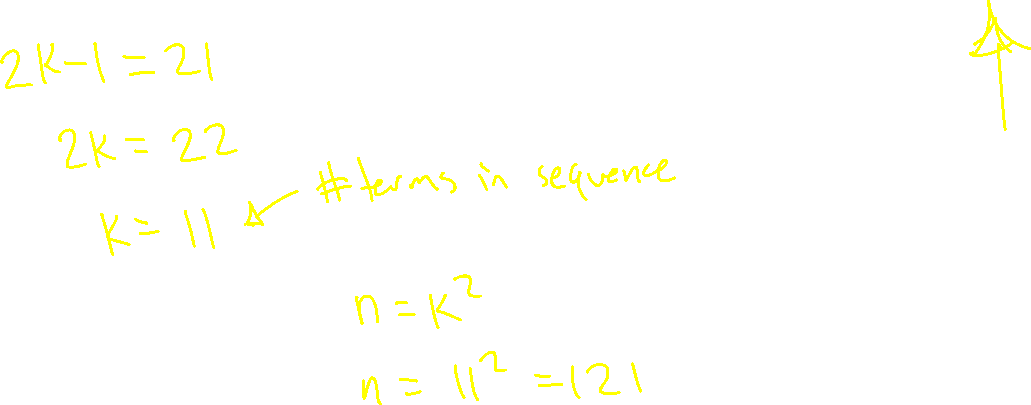 2k-1=21
2k=22
k=11
#terms in sequence
n=k²
n=11²=121